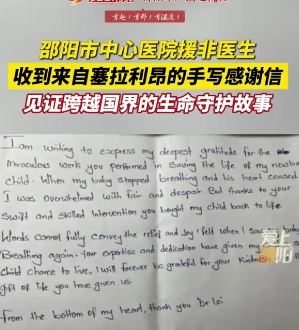 有起！有料！有温度！
邵阳市中心医院援非医生
收到来自塞拉利昂的手写感谢信
见证跨越国界的生命守护故事
I am writing to express my deepest gratitude for the
Miraculous work you performed in Saving the life of my newborn
child. When my baby stopped breathing and his heart ceased
I was overwhelmed with fair and despair. But thanks to your
Swift and skilled Intervention you bought my child back to life.
Words cannot fully convey the relief and joy I felt when I saw
Breathing again. Your expertise and dedication have given my
child chance to live, I will forever be grateful for your kindness
gift of life you have given us.
From the bottom of my heart, thank you Dr Lei
爱上
邵阳